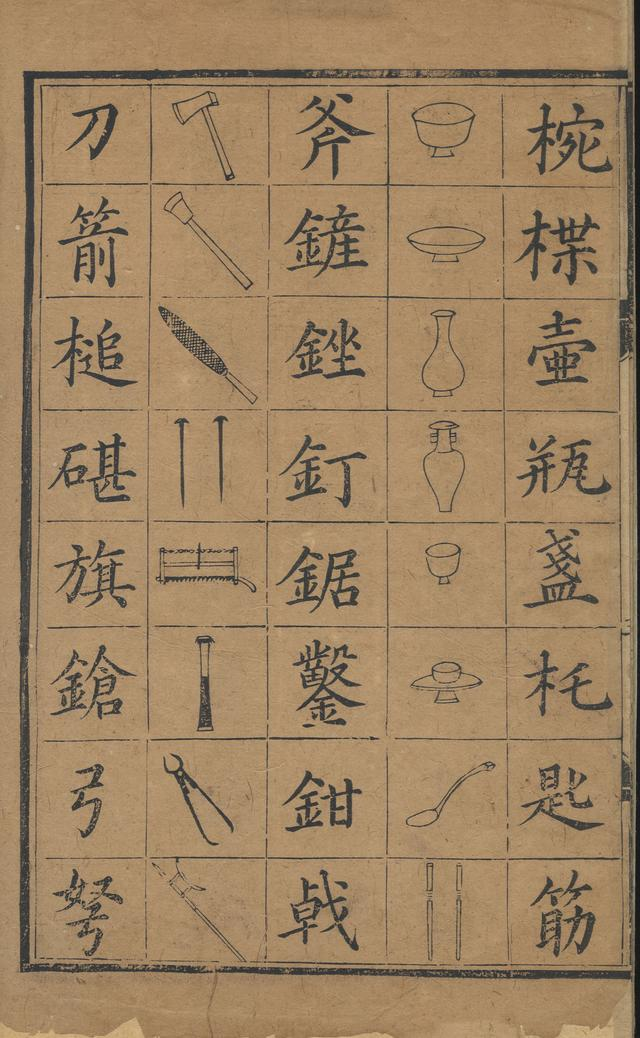 椀楪壺瓶盞杔匙筋
斧鏟銼釘鋸鑿鉗戟
刀箭槌碪旗鎗弓弩